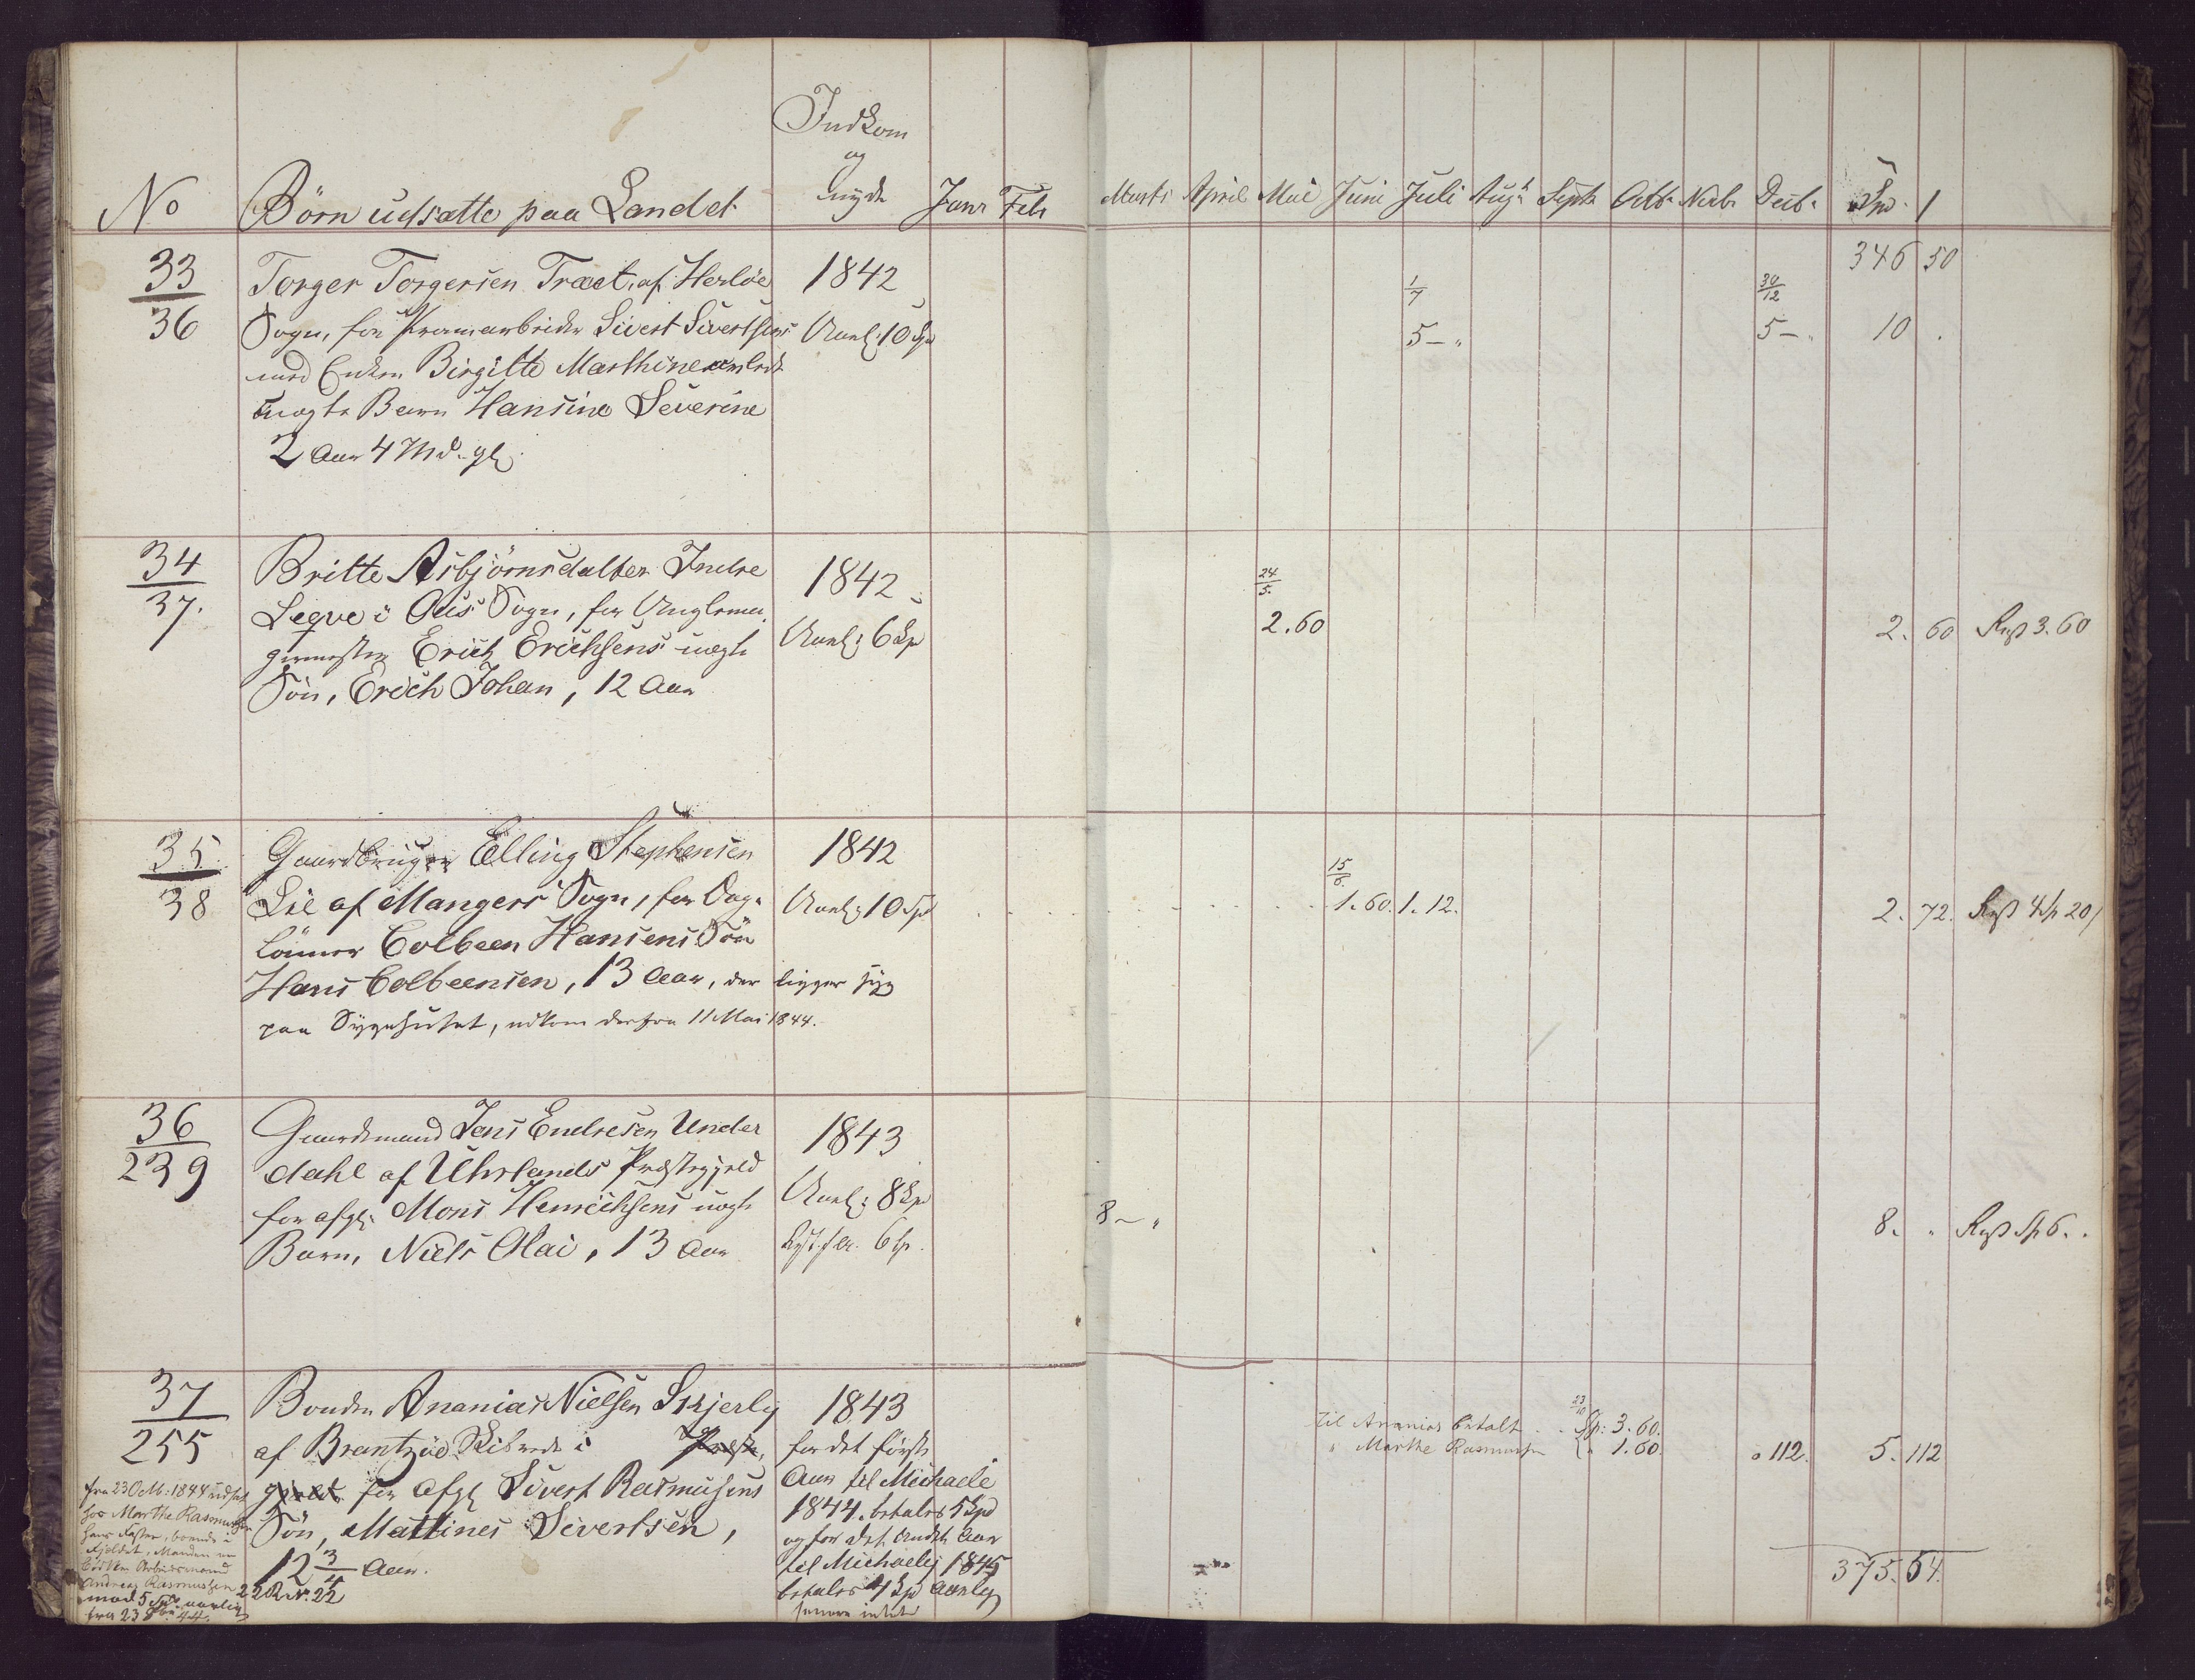 No Börn udsatte paa Landet Indkom og nyde Janr Febr Marts April Mai Juni Juli Augt Septr Octbr Novbr Decbr Spd. /
346 50
33/36 Torger Torgersen Træet, af Herlöe 1842 1/7 30/12
Sogn, for Pramarbeider Sivert Sivertsens Aarl: 10 Spd 5 – " 5 – " 10 .
med Enken Birgitte Marthine
uægte Barn Hansine Severine
2 Aar 4 Md. gl.
34/37. Britte Asbjörnsdatter Indre 1842 24/5.
i Ous Sogn, for Aarl: 6 Spd 2.60 2. 60 Rest 3.60
Erich Erichsens uægte
Sön, Erich Johan, 12 Aar
35/38 Gaardbruger Elling Stephensen 1842 15/6.
Lie af Mangers Sogn, for Dag- Aarl: 10 Spd 1. 60. 1. 12. 2. 72. Rest 4 Sp 20/
lönner Colbeen Hansens Sön
Hans Colbeensen, 13 Aar, der ligger syg
paa Sygehuset, udkom derfra 11 Mai 1844.
36/239 Gaardmand Jens Endresen Under 1843
dahl af Uhrlands Præstegjeld Aarl: 8 Spd
for afg: Mons Henrichsens uægte 8 – " 8. " Rest Sp 6. .
Barn, Niels Olai, 13 Aar 6 Sp.
37/255 Bonden Ananias Nielsen Skjerly 1843 til Ananias betalt . . 23/10 Sp: 3. 60.
af Skibrede i Præste for det förste " Marthe Rasmusen " 1. 60 " 112. 5. 112
gjeld for Afg: Sivert Rasmusens Aar til Michaeli
Sön, Mattines Sivertsen, 1844. betales 5 Spd
12 3/4 Aar. og for det Andet Aar
til Michaeli 1845
betales 4 Spd Aarlig
senere intet
fra 23 Octb: 1844 udsat
hos Marthe Rasmusen
hans Faster, boende i
Fjeldet, Manden er
Arbeidsmand
Andreas Rasmussen
mod 5 Spd aarlig
fra 23 8br 44.
22 R No. 22
375. 54.